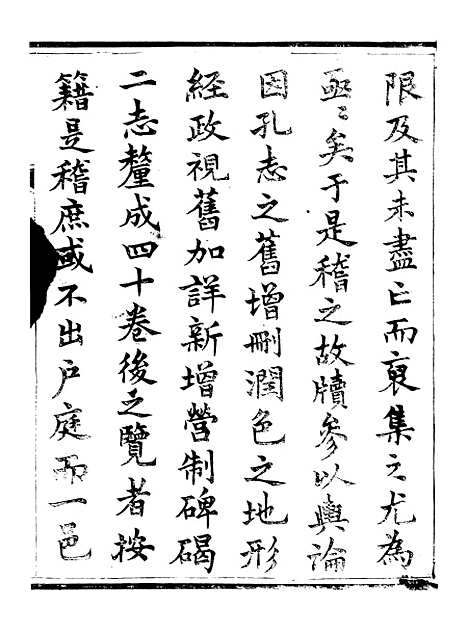 限及其未盡亡而裒集之尤為
亟〻矣于是稽之故牘參以輿論
因孔志之舊增刪潤色之地形
經政視舊加詳新增營制碑碣
二志釐成四十卷後之覽者按
籍是稽庶或不出戶庭而一邑